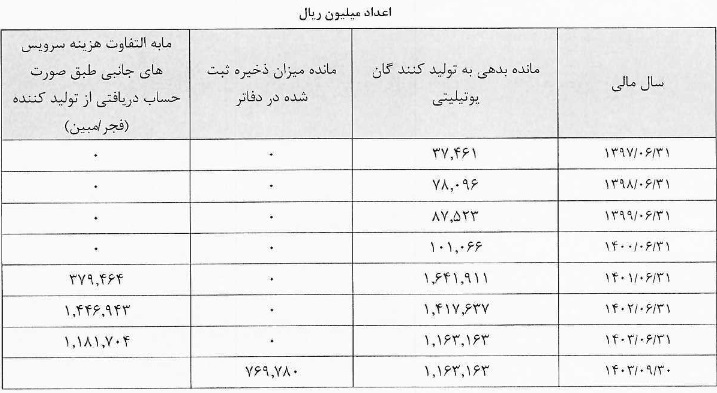 اعداد میلیون ریال
سال مالی | مانده بدهی به تولید کنند گان یوتیلیتی | مانده میزان ذخیره ثبت شده در دفاتر | مابه التفاوت هزینه سرویس های جانبی طبق صورت حساب دریافتی از تولید کننده (فجر/مبین)
۱۳۹۷/۰۶/۳۱ | ۳۷,۴۶۱ | ۰ | ۰
۱۳۹۸/۰۶/۳۱ | ۷۸,۰۹۶ | ۰ | ۰
۱۳۹۹/۰۶/۳۱ | ۸۷,۵۲۳ | ۰ | ۰
۱۴۰۰/۰۶/۳۱ | ۱۰۱,۰۶۶ | ۰ | ۰
۱۴۰۱/۰۶/۳۱ | ۱,۶۴۱,۹۱۱ | ۰ | ۳۷۹,۴۶۴
۱۴۰۲/۰۶/۳۱ | ۱,۴۱۷,۶۳۷ | ۰ | ۱,۴۴۶,۹۴۳
۱۴۰۳/۰۶/۳۱ | ۱,۱۶۳,۱۶۳ | ۰ | ۱,۱۸۱,۷۰۴
۱۴۰۳/۰۹/۳۰ | ۱,۱۶۳,۱۶۳ | ۷۶۹,۷۸۰